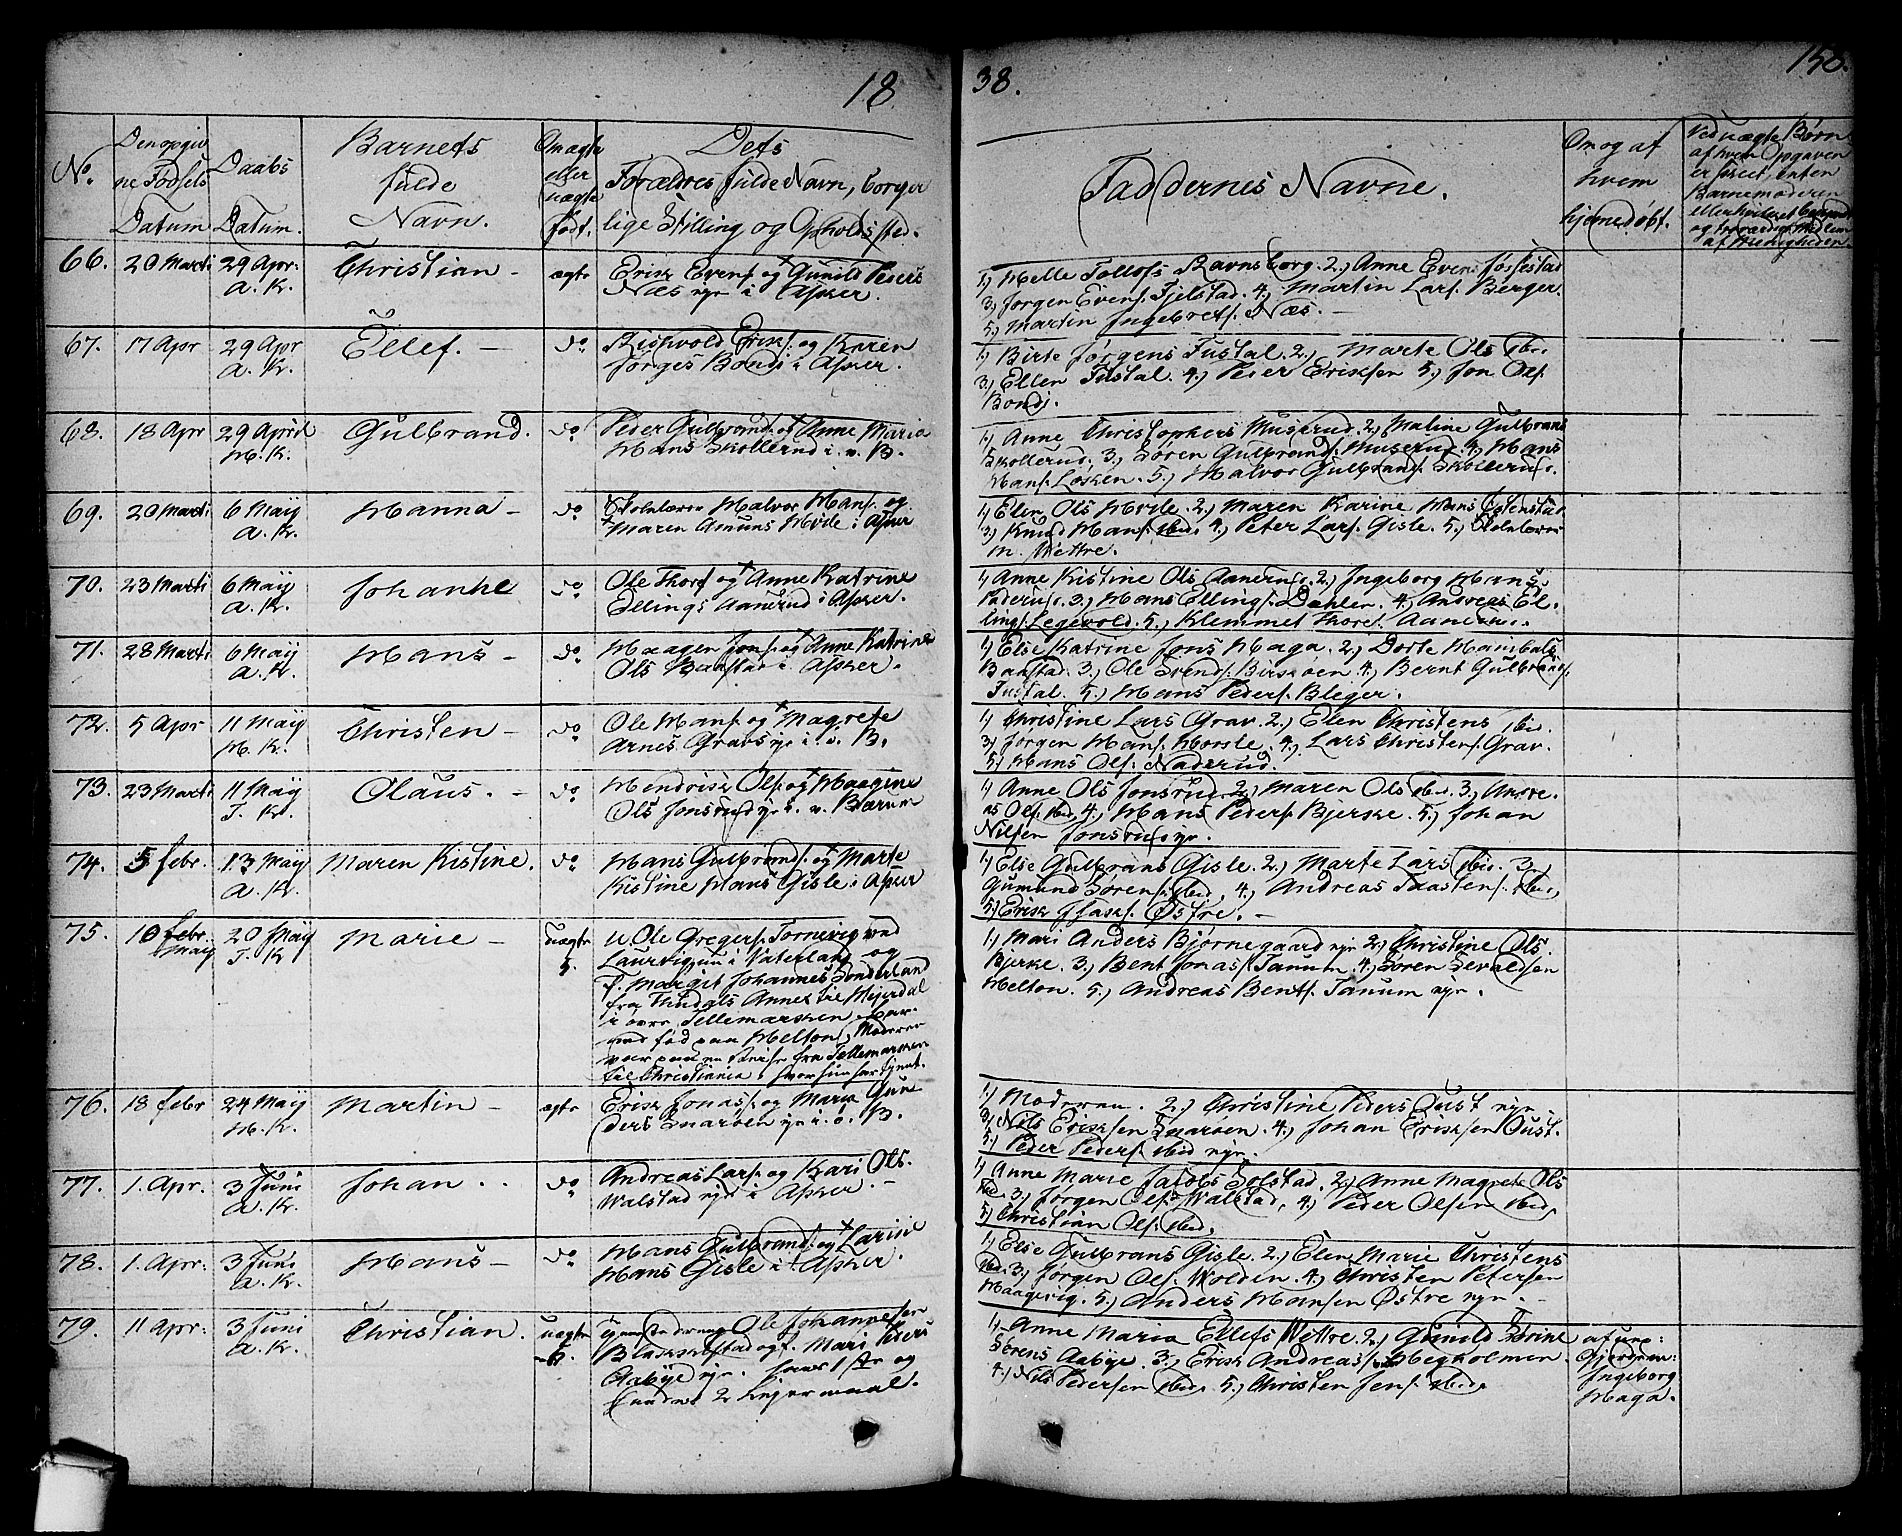 18
38.
150.
No.
Den opgiv
ne Fødsels
Datum
Daabs
Datum.
Barnets
fulde
Navn.
Om ægte
eller
uægte
født.
Dets
Forældres fulde Navn, borger
lige Stilling og Opholdssted.
Faddernes Navne.
Om og af
hvem
hjemedøbt.
Ved uægte Børn
af hvem Opgaven
er skeet, enten
Barnemoderen
eller hvilket
og troværdigt Medlem
af Menigheden.
66. 20 Marti 29 Apr: Christian - ægte Erik Evens. og Gunild Peders
A. K. Næs nyr i Asker.
1.) Helle Tollofs Ravnsborg. 2.) Anne Evens
3.) Jørgen Evens. Fjelstad. 4.) Martin Lars. Berger.
5.) Martin Ingebrets. Næs. -
67. 17 Apr 29 Apr Ellef. - do Erik. og Karen
A. K. Jørges Bondi i Asker.
1.) Birte Jørgens Fustal. 2.) Marte Ols ibid.
3.) Ellen Fustal. 4.) Peder Eriksen 5.) Jon Ols.
Bondi.
68. 18 Apr 29 April Gulbrand. do Peder Gulbrands. og Anne Maria
H. K. Hans Skollerud i. v. B.
1.) Anne Christophers Muserud. 2.) Maline Gulbrans
Skollerud. 3.) Søren Gulbrands. Muserud. 4.) Hans
Hans. Løsken. 5.) Halvor Gulbrands. Skollerud.
69. 20 Marti 6 Maij Hanna - do Skolelærer Halvor Hans. og
A. K. Maren Amuns Hvile i Asker
1.) Elen Ols Hvile. 2.) Maren Karine Hans
3.) Knud Hans. ibid. 4.) Peter Lars. Gisle. 5.) Skolelærer
m. Wettre.
70. 23 Marti 6 Maij Johanne do Ole Thors. og Anne Katrine
A. K. Ellings Aanerud i Asker.
1.) Anne Kistine Ols Aanerud. 2.) Ingeborg Hans
Paderud. 3.) Hans Ellings. Dahlen. 4.) Andreas El-
lings. Legevold. 5.) Klemmet Thors. Aanerud.
71. 28 Marti 6 Maij Hans - do Haagen Jons. og Anne Katrine
A. K. Ols Baastad i Asker.
1.) Else Katrine Jons Haga. 2.) Dorte
Baastad. 3.) Ole Svends. 4.) Bernt Gulbrans.
Fustal. 5.) Hans Peders. Bleger.
72. 5 Apr 11 Maij Christen - do Ole Hans. og Magrete
H. K. Arnes Gravs yr i. v. B.
1.) Christine Lars Grav. 2.) Elen Christens ibid.
3.) Jørgen Hans. Horsle. 4.) Lars Christens. Grav.
5.) Hans Ols. Naderud.
73. 23 Marti 11 Maij Olaus. - do Hendrik Ols. og Haagine
T. K. Ols Jonsrud yr i. v. Bærum
1.) Anne Ols Jonsrud. 2.) Maren Ols ibid. 3.) Andre-
as Ols. ibid. 4.) Hans Peders. Bjerke. 5.) Johan
Nilsen Jonsrud yr.
74. 5 febr. 13 Maij Maren Kistine. do Hans Gulbrands. og Marte
A. K. Kistine Hans Gisle i Asker
1.) Else Gulbrans Gisle. 2.) Marte Lars ibid. 3.)
Gumund Sørens. ibid. 4.) Andreas ibid.
5.) Erik Østre. -
75. 10 febr. 20 Maij Marie - uægte U. Ole Gregers. Tornevig ved
Maij T. K 5. Laurvigum i Vaterland og
F. Margit Johannes Sønderland
fra Annex til Hjerdal
i øvre Tellemarken
født paa Helton, Moderen
var paa en Reise fra Tellemarken
til Christiania, hvor hun har tjent.
1.) Mari Anders Bjørnegaard nyr 2.) Christine Ols.
Bjerke. 3.) Bent Jonas. Tanum. 4.) Søren Sevaldsen
Helton. 5.) Andreas Bents. Tanum nyr.
76. 18 febr 24 Maij Martin - ægte Erik Jonas. og Maria Gun-
H. K. ders Snarøen yr i. v. B.
1.) Moderen. 2.) Christine Peders Oust nyr
3.) Nils Eriksen Snarøen. 4.) Johan Eriksen Oust.
5.) Peder Peders. ibid nyr.
77. 1. Apr: 3 Juni Johan . . do Andreas Lars. og Kari Ols.
A. K. Walstad nyr i Asker. -
1.) Anne Marie Solstad, 2.) Anne Magrete Ols
ibid. 3.) Jørgen Ols. Walstad, 4.) Peder Olsen ibid.
5.) Christian Ols. ibid.
78. 1. Apr: 3 Juni Hans - do Hans Gulbrands. og Larine
A. K. Hans Gisle i Asker.
1.) Else Gulbrans Gisle. 2.) Elen Marie Christens
ibid. 3.) Jørgen Ols. Wolden. 4.) Christen Petersen
Haagevig. 5.) Anders Hansen Østre nyr. -
79. 11 Apr: 3 Juni Christian. uægte Ole Johannesen
A. K. 6. Blakkestad og f. Mari Peders
Aabye nyr. hans 1ste og
hendes 2 Leiermaal.
1.) Anne Maria Ellefs Wettre. 2.) Gunild Sørine
Sørens Aabye. 3.) Erik Andreas. Hegholmen.
4.) Nils Pedersen ibid. 5.) Christen Jens. ibid.
af
Gjordem:
Ingeborg
Haga.